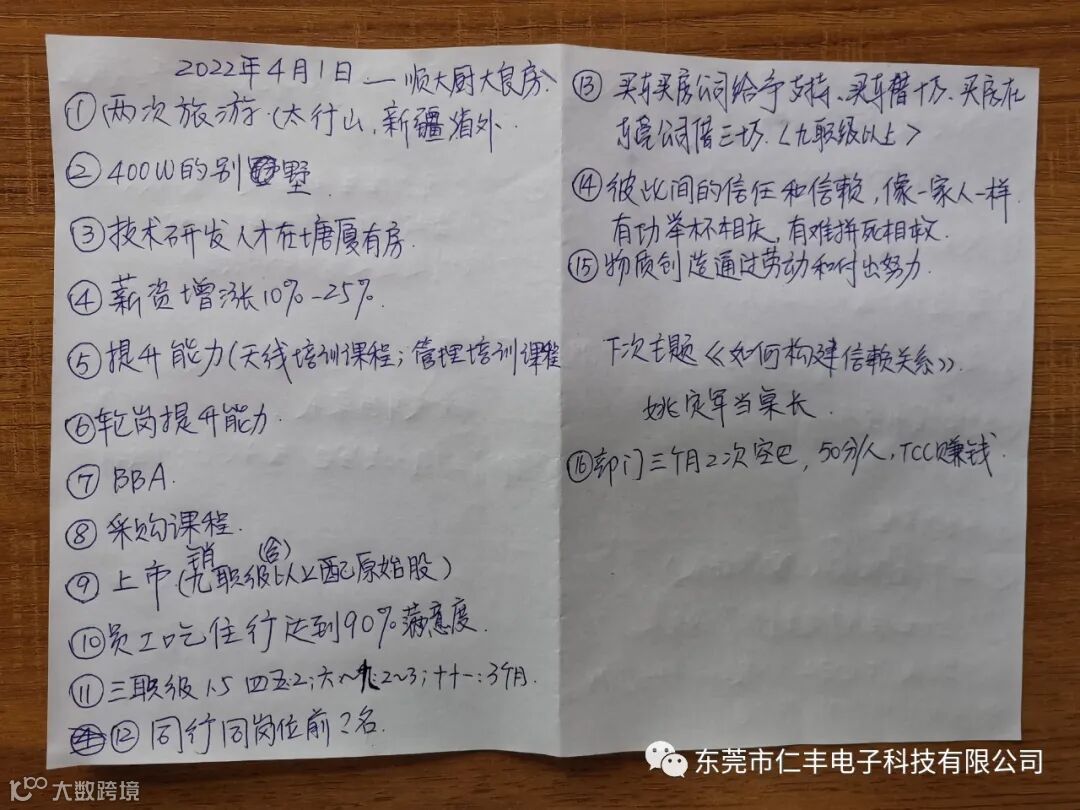 2022年4月1日 — 顺大厨大良房
① 两次旅游(太行山,新疆省外
② 400W的别墅
③ 技术研发人才在塘厦有房.
④ 薪资增涨10%-25%.
⑤ 提升能力(天线培训课程;管理培训课程
⑥ 轮岗提升能力.
⑦ BBA.
⑧ 采购课程.
销 (含)
⑨ 上市(九职级以上配原始股)
⑩ 员工吃住行达到90%满意度.
⑪ 三职级1.5 四五:2;六~九:2~3;十十一:3个月.
⑫ 同行同岗位前2名.
⑬ 买车买房公司给予支持、买车借十万、买房在
东莞公司借三十万.<九职级以上>
⑭ 彼此间的信任和信赖,像一家人一样.
有功举杯相庆,有难拼死相救.
⑮ 物质创造通过劳动和付出努力.
下次主题《如何构建信赖关系》.
姚定军当桌长.
⑯ 部门三个月2次空巴,50分/人,TCC赚钱.
东莞市仁丰电子科技有限公司
大数跨境